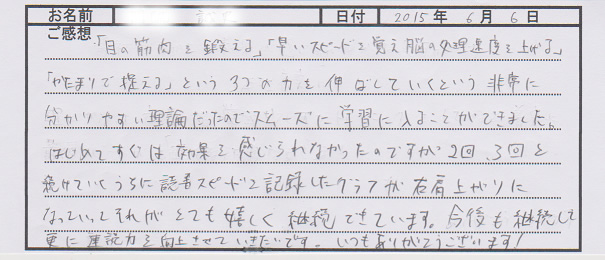 お名前 日付 2015 年 6 月 6 日
ご感想「目の筋肉を鍛える」「早いスピードを覚え脳の処理速度を上げる」
「かたまりで捉える」という3つの力を伸ばしていくという非常に
分かりやすい理論だったのでスムーズに学習に入ることができました。
はじめてすぐは効果を感じられなかったのですが2回、3回と
続けていくうちに読書スピードを記録したグラフが右肩上がりに
なっていってそれがとても嬉しく継続できています。今後も継続して
更に速読力を向上させていきたいです。いつもありがとうございます!